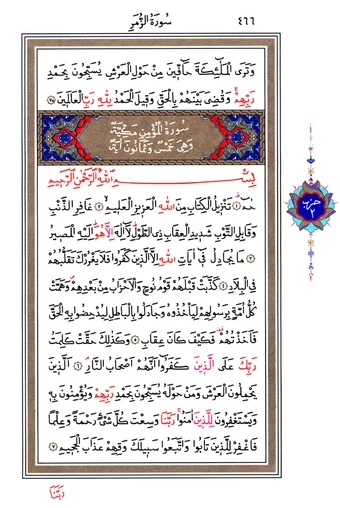 ٤٦٦ سُورَةُ الزُّمَرِ
وَتَرَى الْمَلٰٓئِكَةَ حَٓافّ۪ينَ مِنْ حَوْلِ الْعَرْشِ يُسَبِّحُونَ بِحَمْدِ
رَبِّهِمْۚ وَقُضِىَ بَيْنَهُمْ بِالْحَقِّ وَق۪يلَ الْحَمْدُ لِلّٰهِ رَبِّ الْعَالَم۪ينَ ﴿٧٥﴾
سُورَةُ الْمُؤْمِنِ مَكِّيَّةٌ
وَهِىَ خَمْسٌ وَثَمَانُونَ اٰيَةً
بِسْمِ اللّٰهِ الرَّحْمٰنِ الرَّح۪يمِ
حٰمٓۜ ﴿١﴾ تَنْز۪يلُ الْكِتَابِ مِنَ اللّٰهِ الْعَز۪يزِ الْعَل۪يمِۙ ﴿٢﴾ غَافِرِ الذَّنْبِ
وَقَابِلِ التَّوْبِ شَد۪يدِ الْعِقَابِ ذِى الطَّوْلِۜ لَٓا اِلٰهَ اِلَّا هُوَۜ اِلَيْهِ الْمَص۪يرُ
﴿٣﴾ مَا يُجَادِلُ ف۪ٓى اٰيَاتِ اللّٰهِ اِلَّا الَّذ۪ينَ كَفَرُوا فَلَا يَغْرُرْكَ تَقَلُّبُهُمْ
فِى الْبِلَادِ ﴿٤﴾ كَذَّبَتْ قَبْلَهُمْ قَوْمُ نُوحٍ وَالْاَحْزَابُ مِنْ بَعْدِهِمْۖ وَهَمَّتْ
كُلُّ اُمَّةٍ بِرَسُولِهِمْ لِيَاْخُذُوهُ وَجَادَلُوا بِالْبَاطِلِ لِيُدْحِضُوا بِهِ الْحَقَّ
فَاَخَذْتُهُمْ۠ فَكَيْفَ كَانَ عِقَابِ ﴿٥﴾ وَكَذٰلِكَ حَقَّتْ كَلِمَتُ
رَبِّكَ عَلَى الَّذ۪ينَ كَفَرُٓوا اَنَّهُمْ اَصْحَابُ النَّارِۢ ﴿٦﴾ اَلَّذ۪ينَ
يَحْمِلُونَ الْعَرْشَ وَمَنْ حَوْلَهُ يُسَبِّحُونَ بِحَمْدِ رَبِّهِمْ وَيُؤْمِنُونَ بِه۪
وَيَسْتَغْفِرُونَ لِلَّذ۪ينَ اٰمَنُواۚ رَبَّنَا وَسِعْتَ كُلَّ شَىْءٍ رَحْمَةً وَعِلْمًا
فَاغْفِرْ لِلَّذ۪ينَ تَابُوا وَاتَّبَعُوا سَب۪يلَكَ وَقِهِمْ عَذَابَ الْجَح۪يمِ ﴿٧﴾
رَبَّنَا
حزب
٢